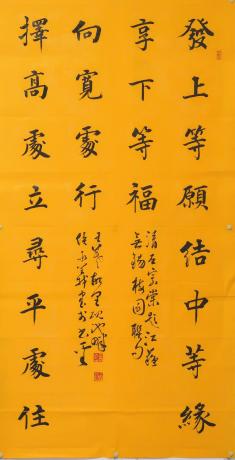 發上等願結中等緣
享下等福
向寬處行
擇高處立尋平處住
清左宗棠題江蘇
無錫梅園聯句